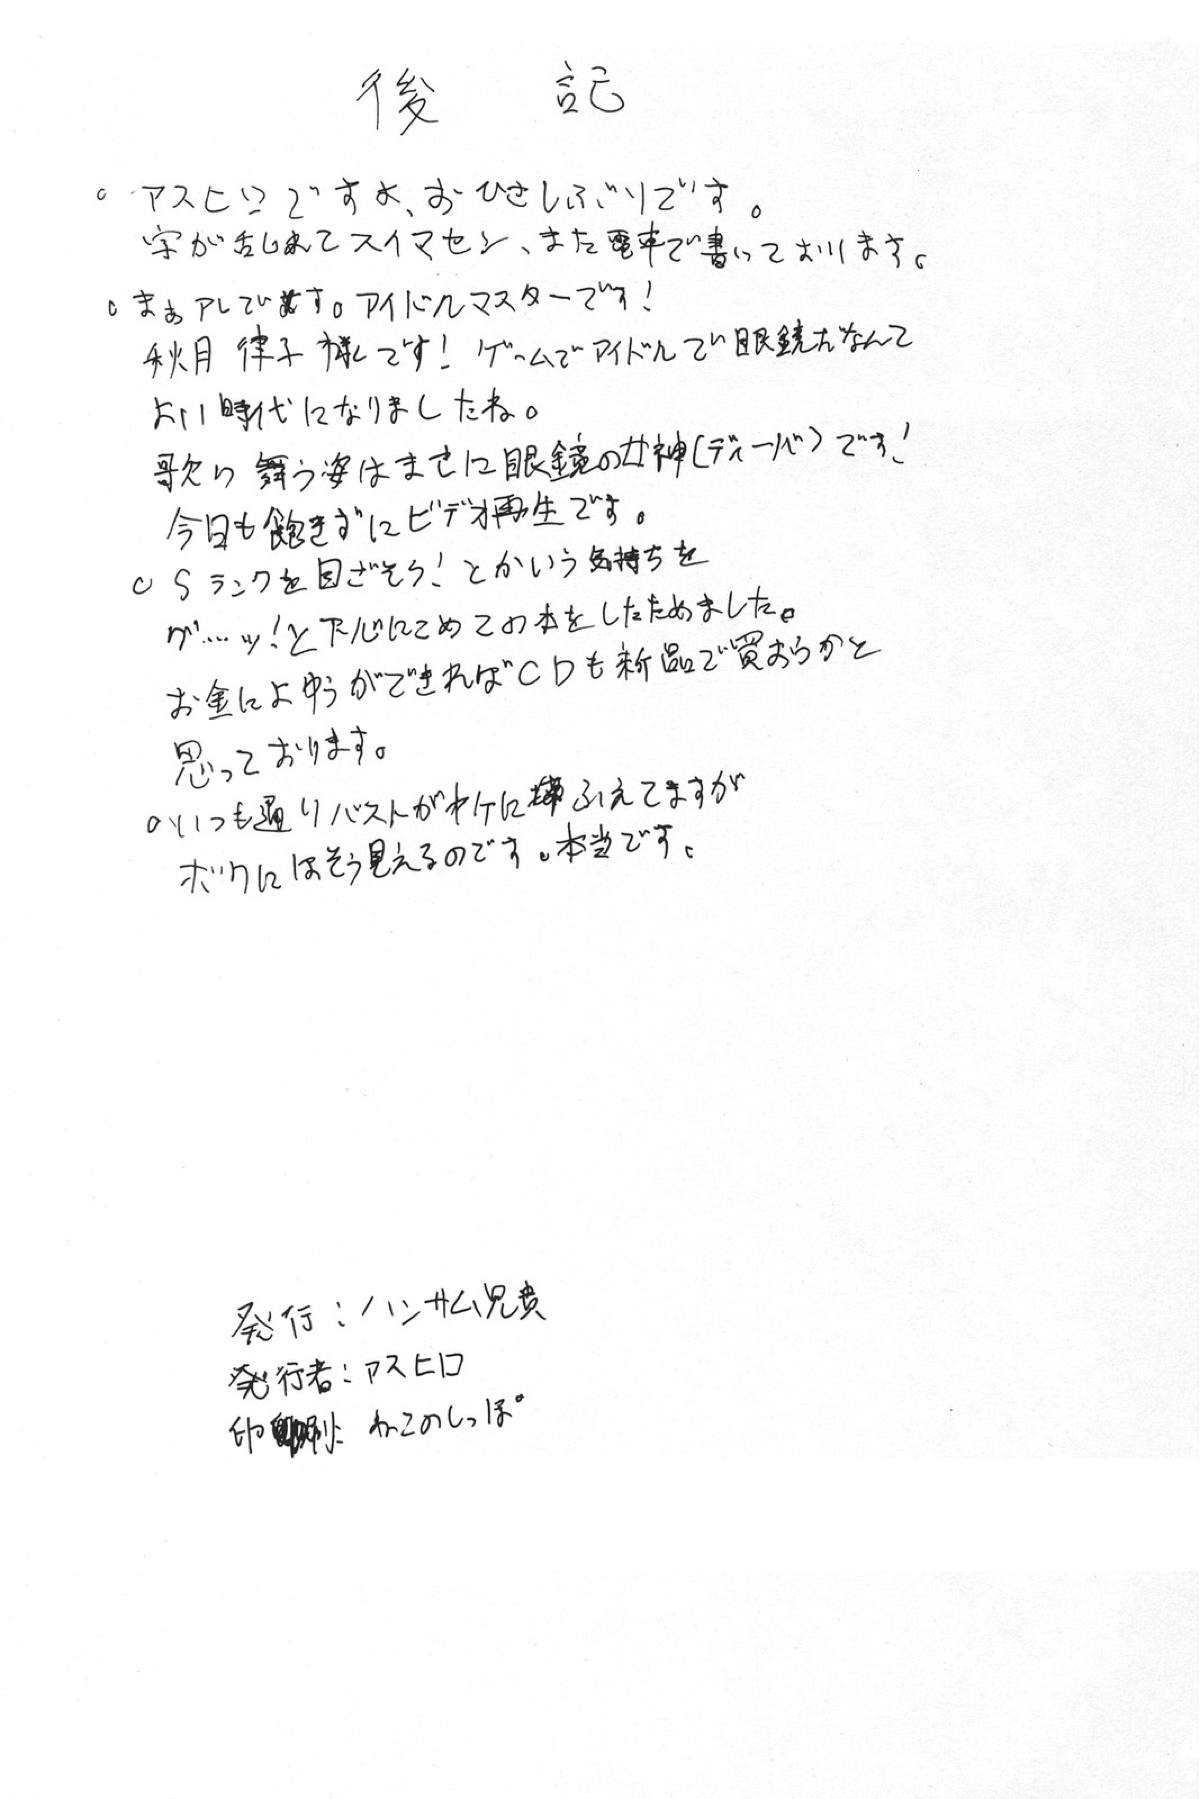 後記
○アスヒロですよ、おひさしぶりです。
字が乱れてスイマセン、また電車で書いております。
○まぁアレでいます。アイドルマスターです!
秋月律子様です! ゲームでアイドルで眼鏡だなんて
よい時代になりましたね。
歌い舞う姿はまさに眼鏡の女神(ディーバ)です!
今日も飽きずにビデオ再生です。
○Sランクを目ざそう!とかいう気持ちを
グ…ッ!と下心にこめてこの本をしたためました。
お金によゆうができればCDも新品で買おうかと
思っております。
○いつも通りバストがヤケにふえてますが
ボクにはそう見えるのです。本当です。
発行:ハンサム兄貴
発行者:アスヒロ
印刷:ねこのしっぽ